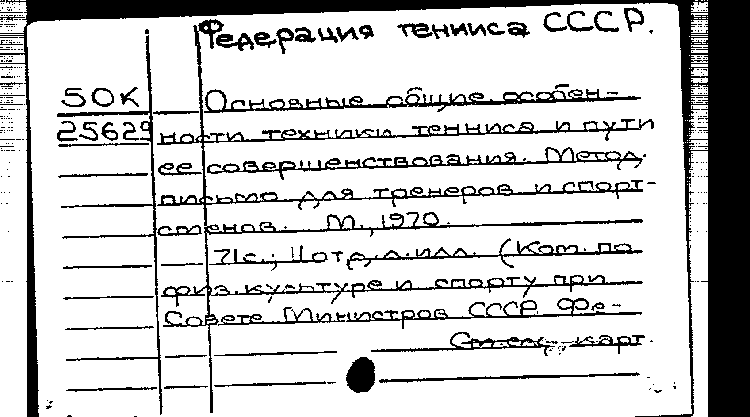 Федерация тенниса СССР.
50К Основные общие особен-
25629 ности техники тенниса и пути
ее совершенствования. Метод.
письмо для тренеров и спорт-
сменов. М., 1970.
71с.; 11 отд. л. илл. (Ком. по
физ. культуре и спорту при
Совете Министров СССР. Фе-
См. след. карт.